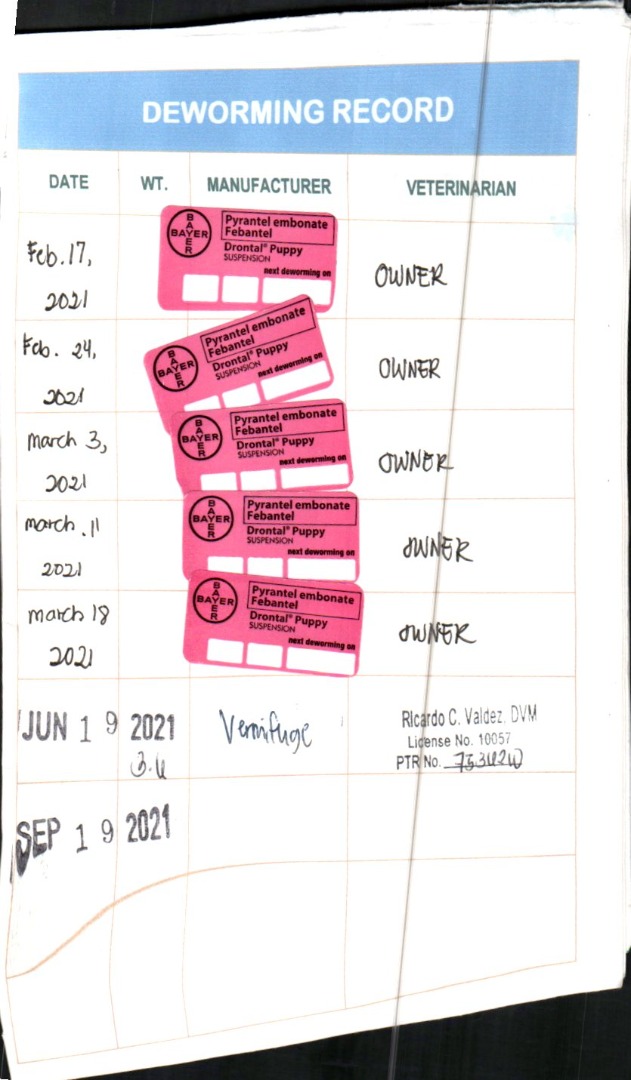 DEWORMING RECORD
DATE WT. MANUFACTURER VETERINARIAN
Feb. 17,
2021
BAYER
BAYER
Pyrantel embonate
Febantel
Drontal® Puppy
SUSPENSION
next deworming on
OWNER
Feb. 24,
2021
BAYER
BAYER
Pyrantel embonate
Febantel
Drontal® Puppy
SUSPENSION
next deworming on
OWNER
March 3,
2021
BAYER
BAYER
Pyrantel embonate
Febantel
Drontal® Puppy
SUSPENSION
next deworming on
OWNER
March . 11
2021
BAYER
BAYER
Pyrantel embonate
Febantel
Drontal® Puppy
SUSPENSION
next deworming on
OWNER
March 18
2021
BAYER
BAYER
Pyrantel embonate
Febantel
Drontal® Puppy
SUSPENSION
next deworming on
OWNER
JUN 19 2021
Vermifuge
Ricardo C. Valdez, DVM
License No. 10057
PTR No.
SEP 19 2021